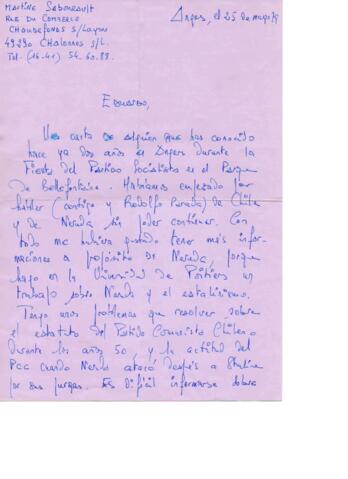 MARTINE SABOURAULT
RUE DU COMMERCE
CHAUDEFONDS S/LAYON
49290 CHALONNES S/L.
Tel. (16-41) 54.60.89.
Angers, el 25 de mayo
EDUARDO,
Una carta de alguien que has conocido
hace ya dos años en Angers durante la
Fiesta del Partido Socialista en el Parque
de Bellefontaine. Habíamos empezado por
hablar (contigo y Rodolfo Parada) de Chile
y de Neruda sin poder continuar. Con
todo me hubiera gustado tener más infor-
maciones a propósito de Neruda, porque
hago en la Universidad de Poitiers un
trabajo sobre Neruda y el estalinismo.
Tengo unos problemas que resolver sobre
el estatuto del Partido Comunista Chileno
durante los años 50, y la actitud del
PCC cuando Neruda atacó después a Staline
por sus purgas. Es difícil informarse sobre